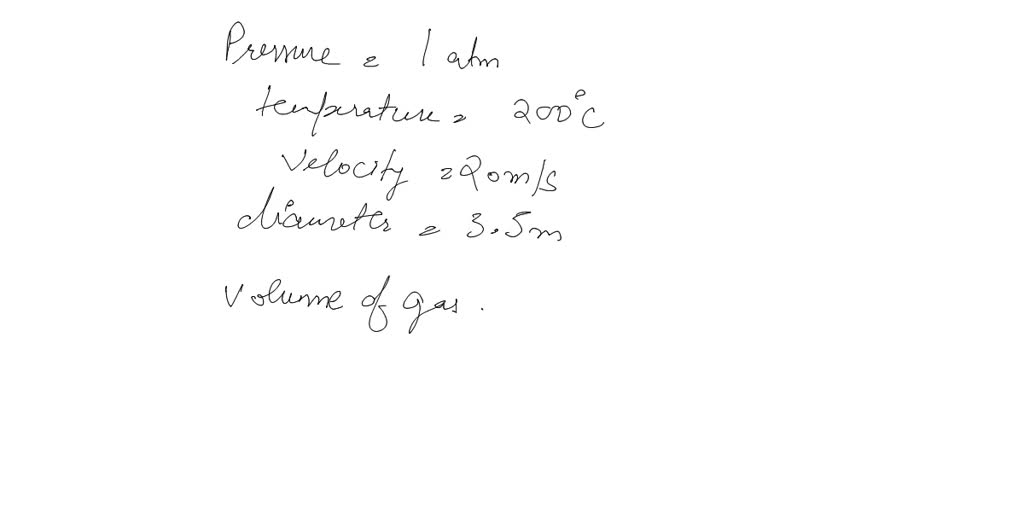 Pressure = 1 atm
temperature = 200°C
velocity = 20 m/s
diameter = 3.5m
volume of gas.